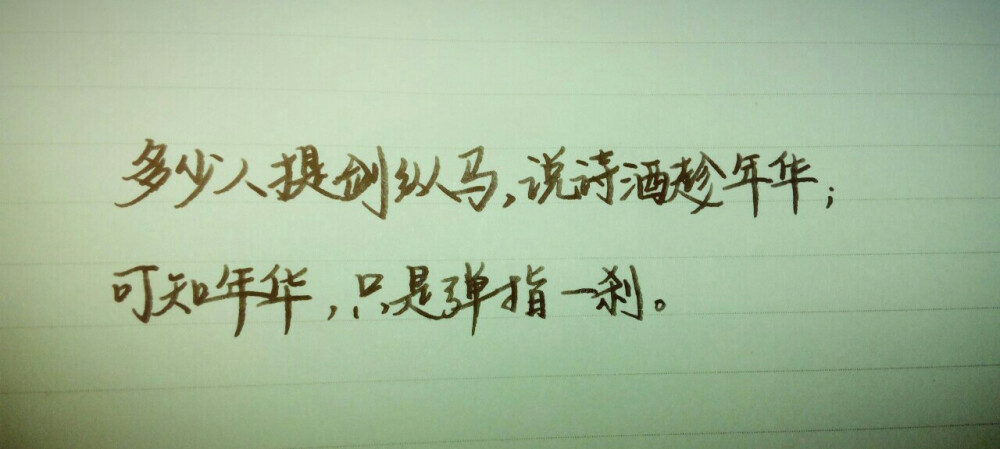 多少人提剑纵马,说诗酒趁年华;
可知年华,只是弹指一刹。